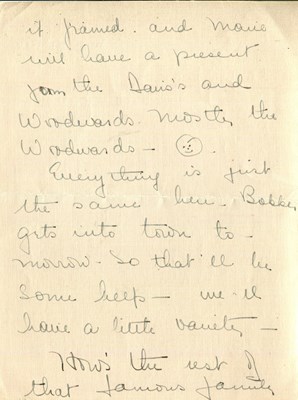 it framed. and Marie
will have a present
from the Davis's and
Woodwards. Mostly the
Woodwards —
Everything is just
the same here.
gets into town to-
morrow. So that'll be
some help — we'll
have a little variety —
How's the rest of
that famous family